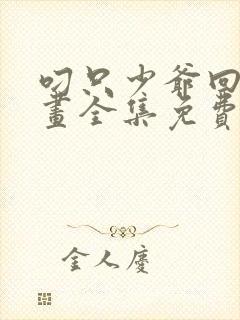 叼只少爷回
畫全集免費
金人慶